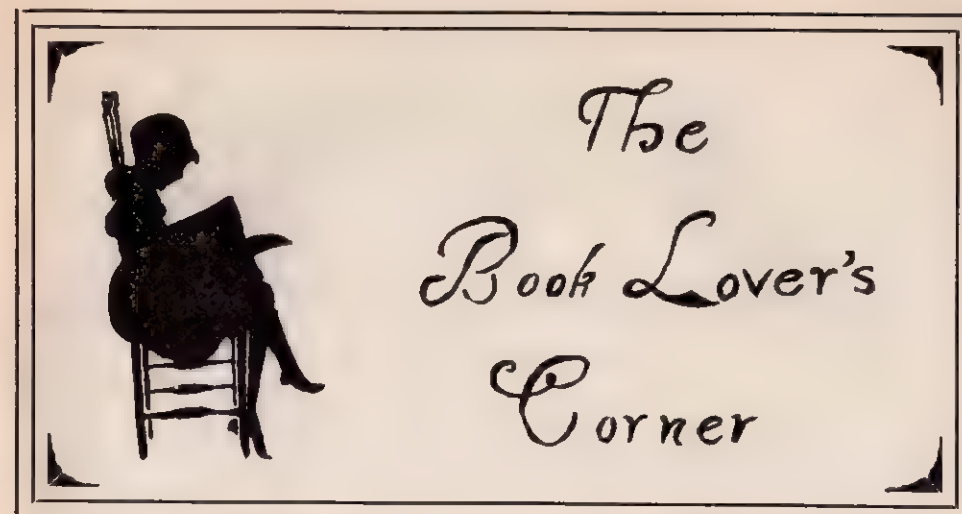 The
Book Lover's
Corner